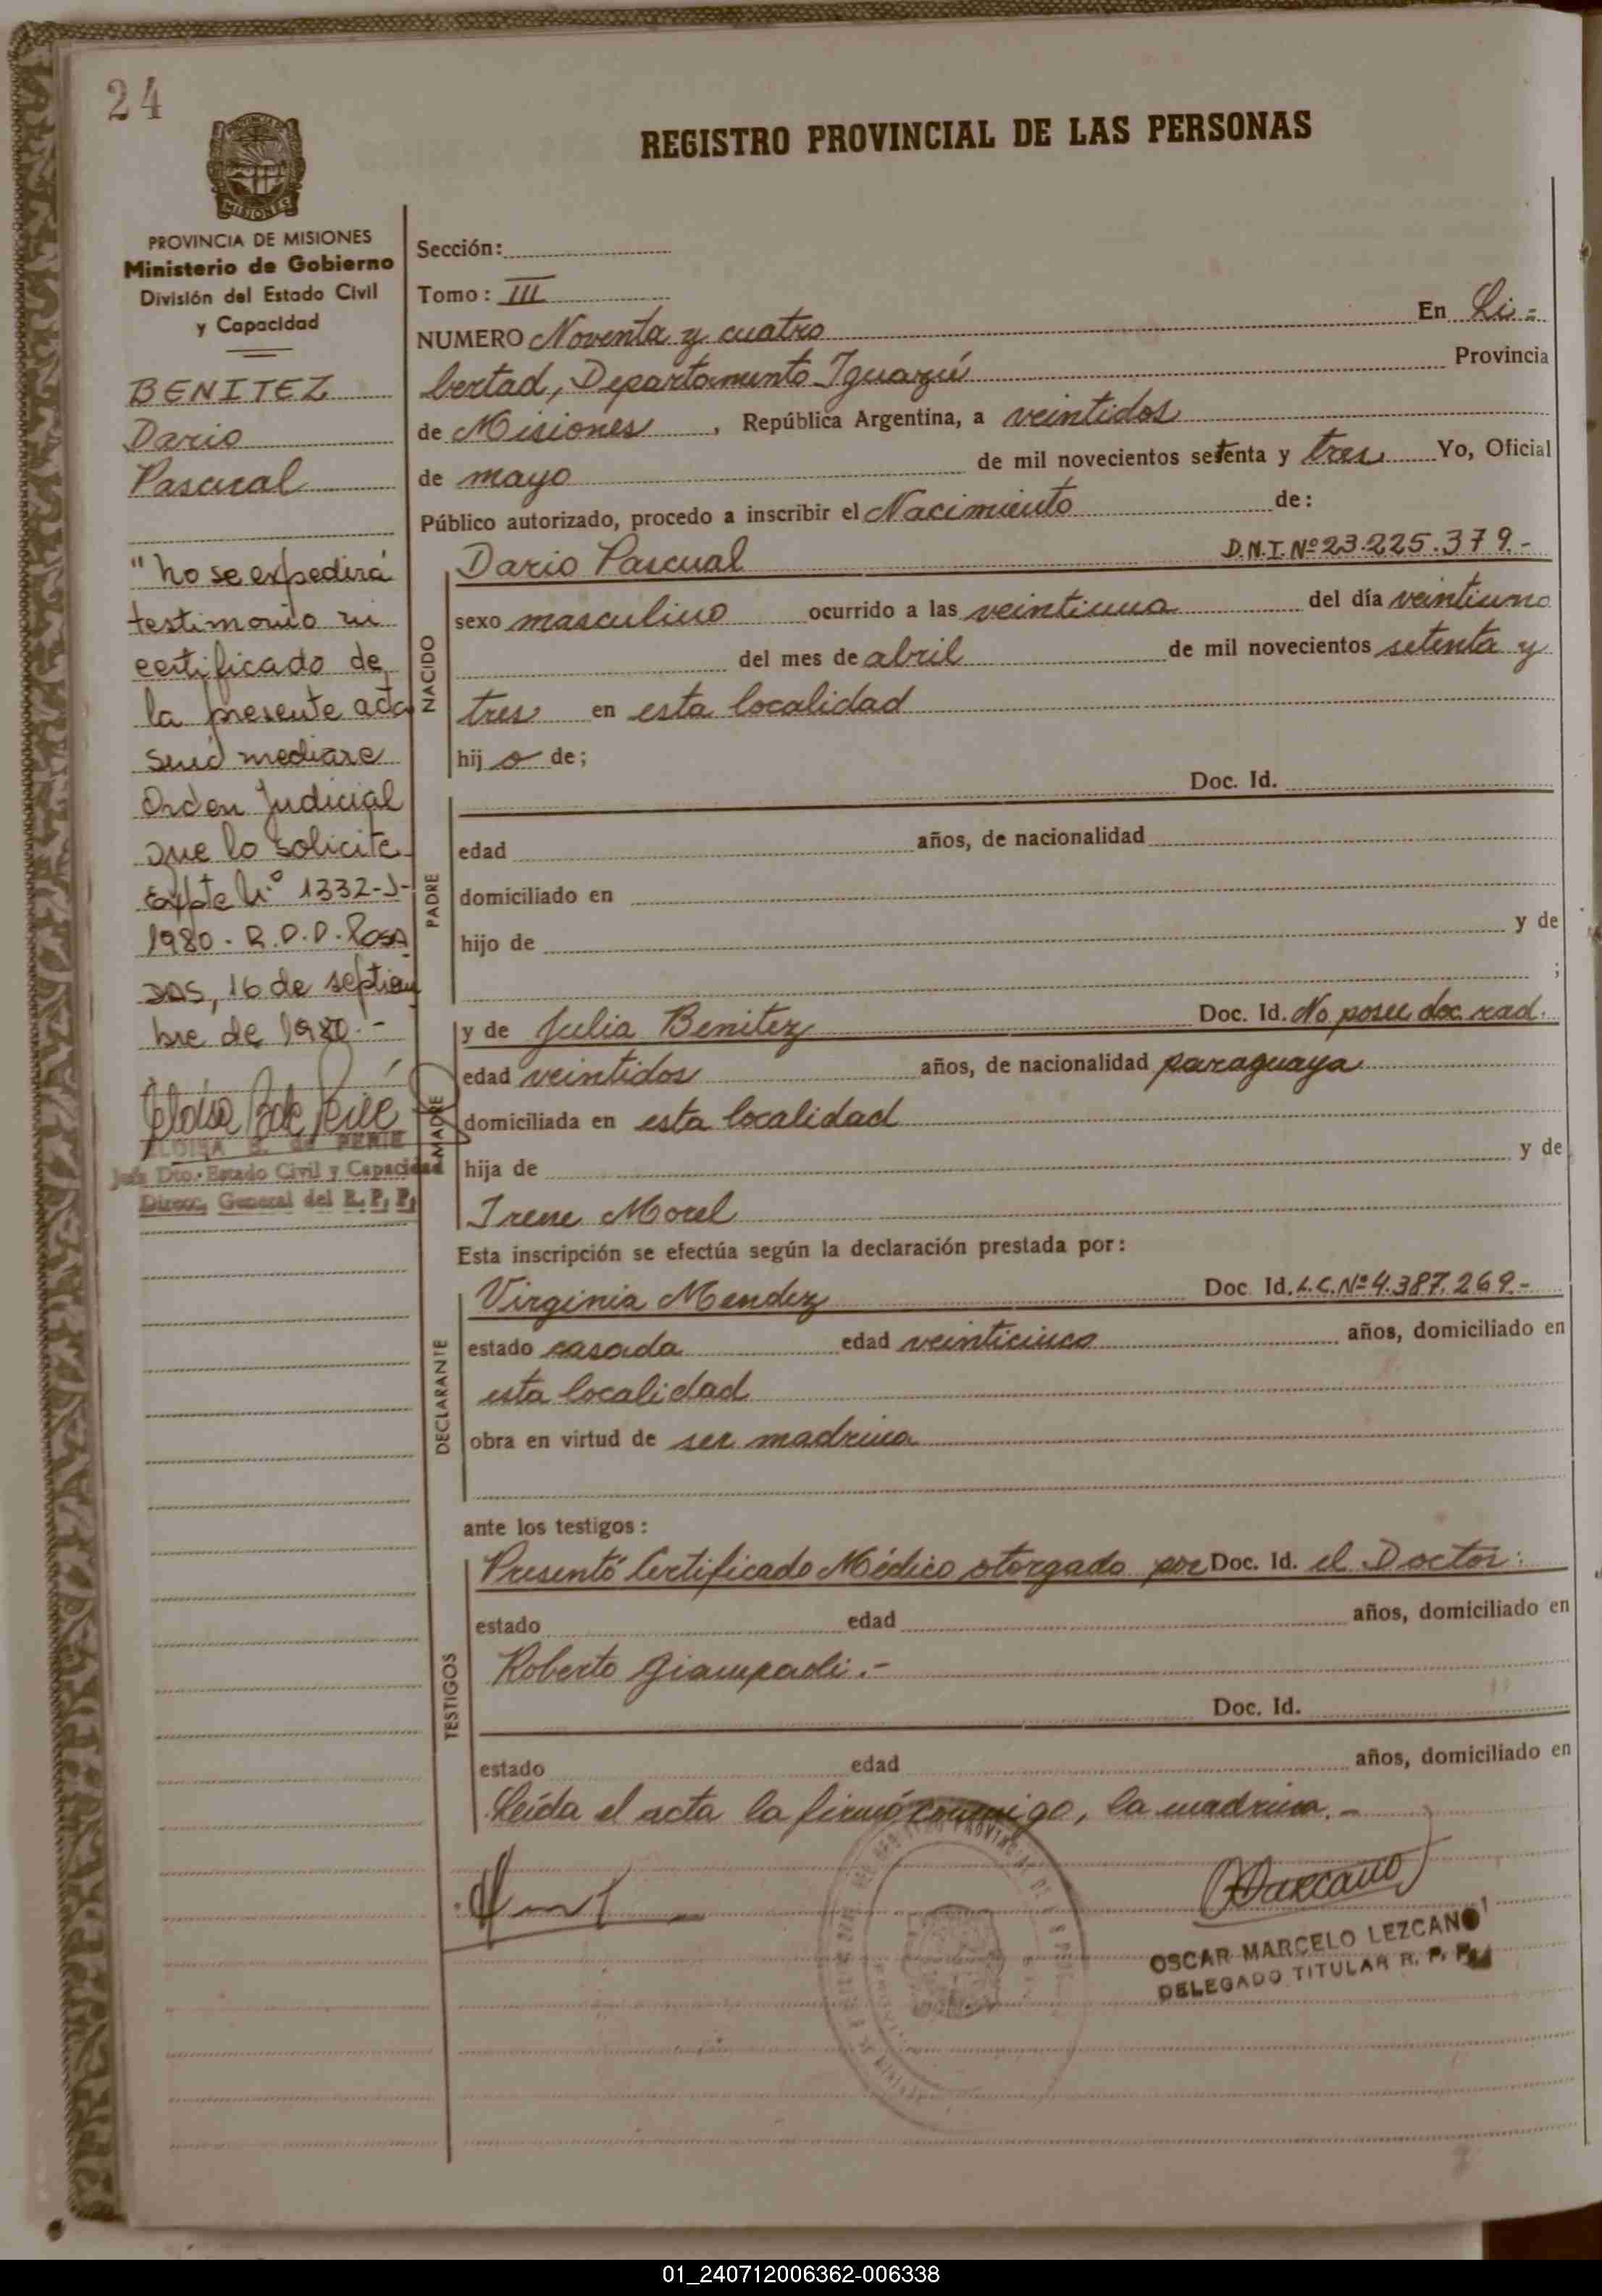 24
REGISTRO PROVINCIAL DE LAS PERSONAS
MISIONES
PROVINCIA DE MISIONES
Ministerio de Gobierno
División del Estado Civil
y Capacidad
BENITEZ
Dario
Pascual
"no se expedirá
testimonio ni
certificado de
la presente acta
sino mediare
Orden Judicial
que lo solicite
Expte Nº 1332-J-
1980 - R.P.P. Posa
DAS, 16 de septiem
bre de 1980.-
ELOISA B. de PERIE
Jefa Dto. Estado Civil y Capacidad
Direcc. General del R. P. P.
Sección:
Tomo: III
NUMERO Noventa y cuatro En Li-
bertad, Departamento Iguazú Provincia
de Misiones, República Argentina, a veintidos
de mayo de mil novecientos setenta y tres Yo, Oficial
Público autorizado, procedo a inscribir el Nacimiento de:
NACIDO
Dario Pascual D.N.I. Nº 23.225.379.-
sexo masculino ocurrido a las veintiuna del día veintiuno
del mes de abril de mil novecientos setenta y
tres en esta localidad
hij o de;
PADRE
Doc. Id.
edad años, de nacionalidad
domiciliado en
hijo de y de
;
MADRE
y de Julia Benitez Doc. Id. No posee doc. rad.
edad veintidos años, de nacionalidad paraguaya
domiciliada en esta localidad
hija de y de
Irene Morel
Esta inscripción se efectúa según la declaración prestada por:
DECLARANTE
Virginia Mendez Doc. Id. L.C. Nº 4.387.269.-
estado casada edad veinticinco años, domiciliado en
esta localidad
obra en virtud de ser madrina
ante los testigos:
TESTIGOS
Presentó Certificado Médico otorgado por Doc. Id. el Doctor:
estado edad años, domiciliado en
Roberto Giampaoli.-
Doc. Id.
estado edad años, domiciliado en
Leída el acta la firmó conmigo, la madrina.-
OSCAR MARCELO LEZCANO
DELEGADO TITULAR R. P. P.
01_240712006362-006338